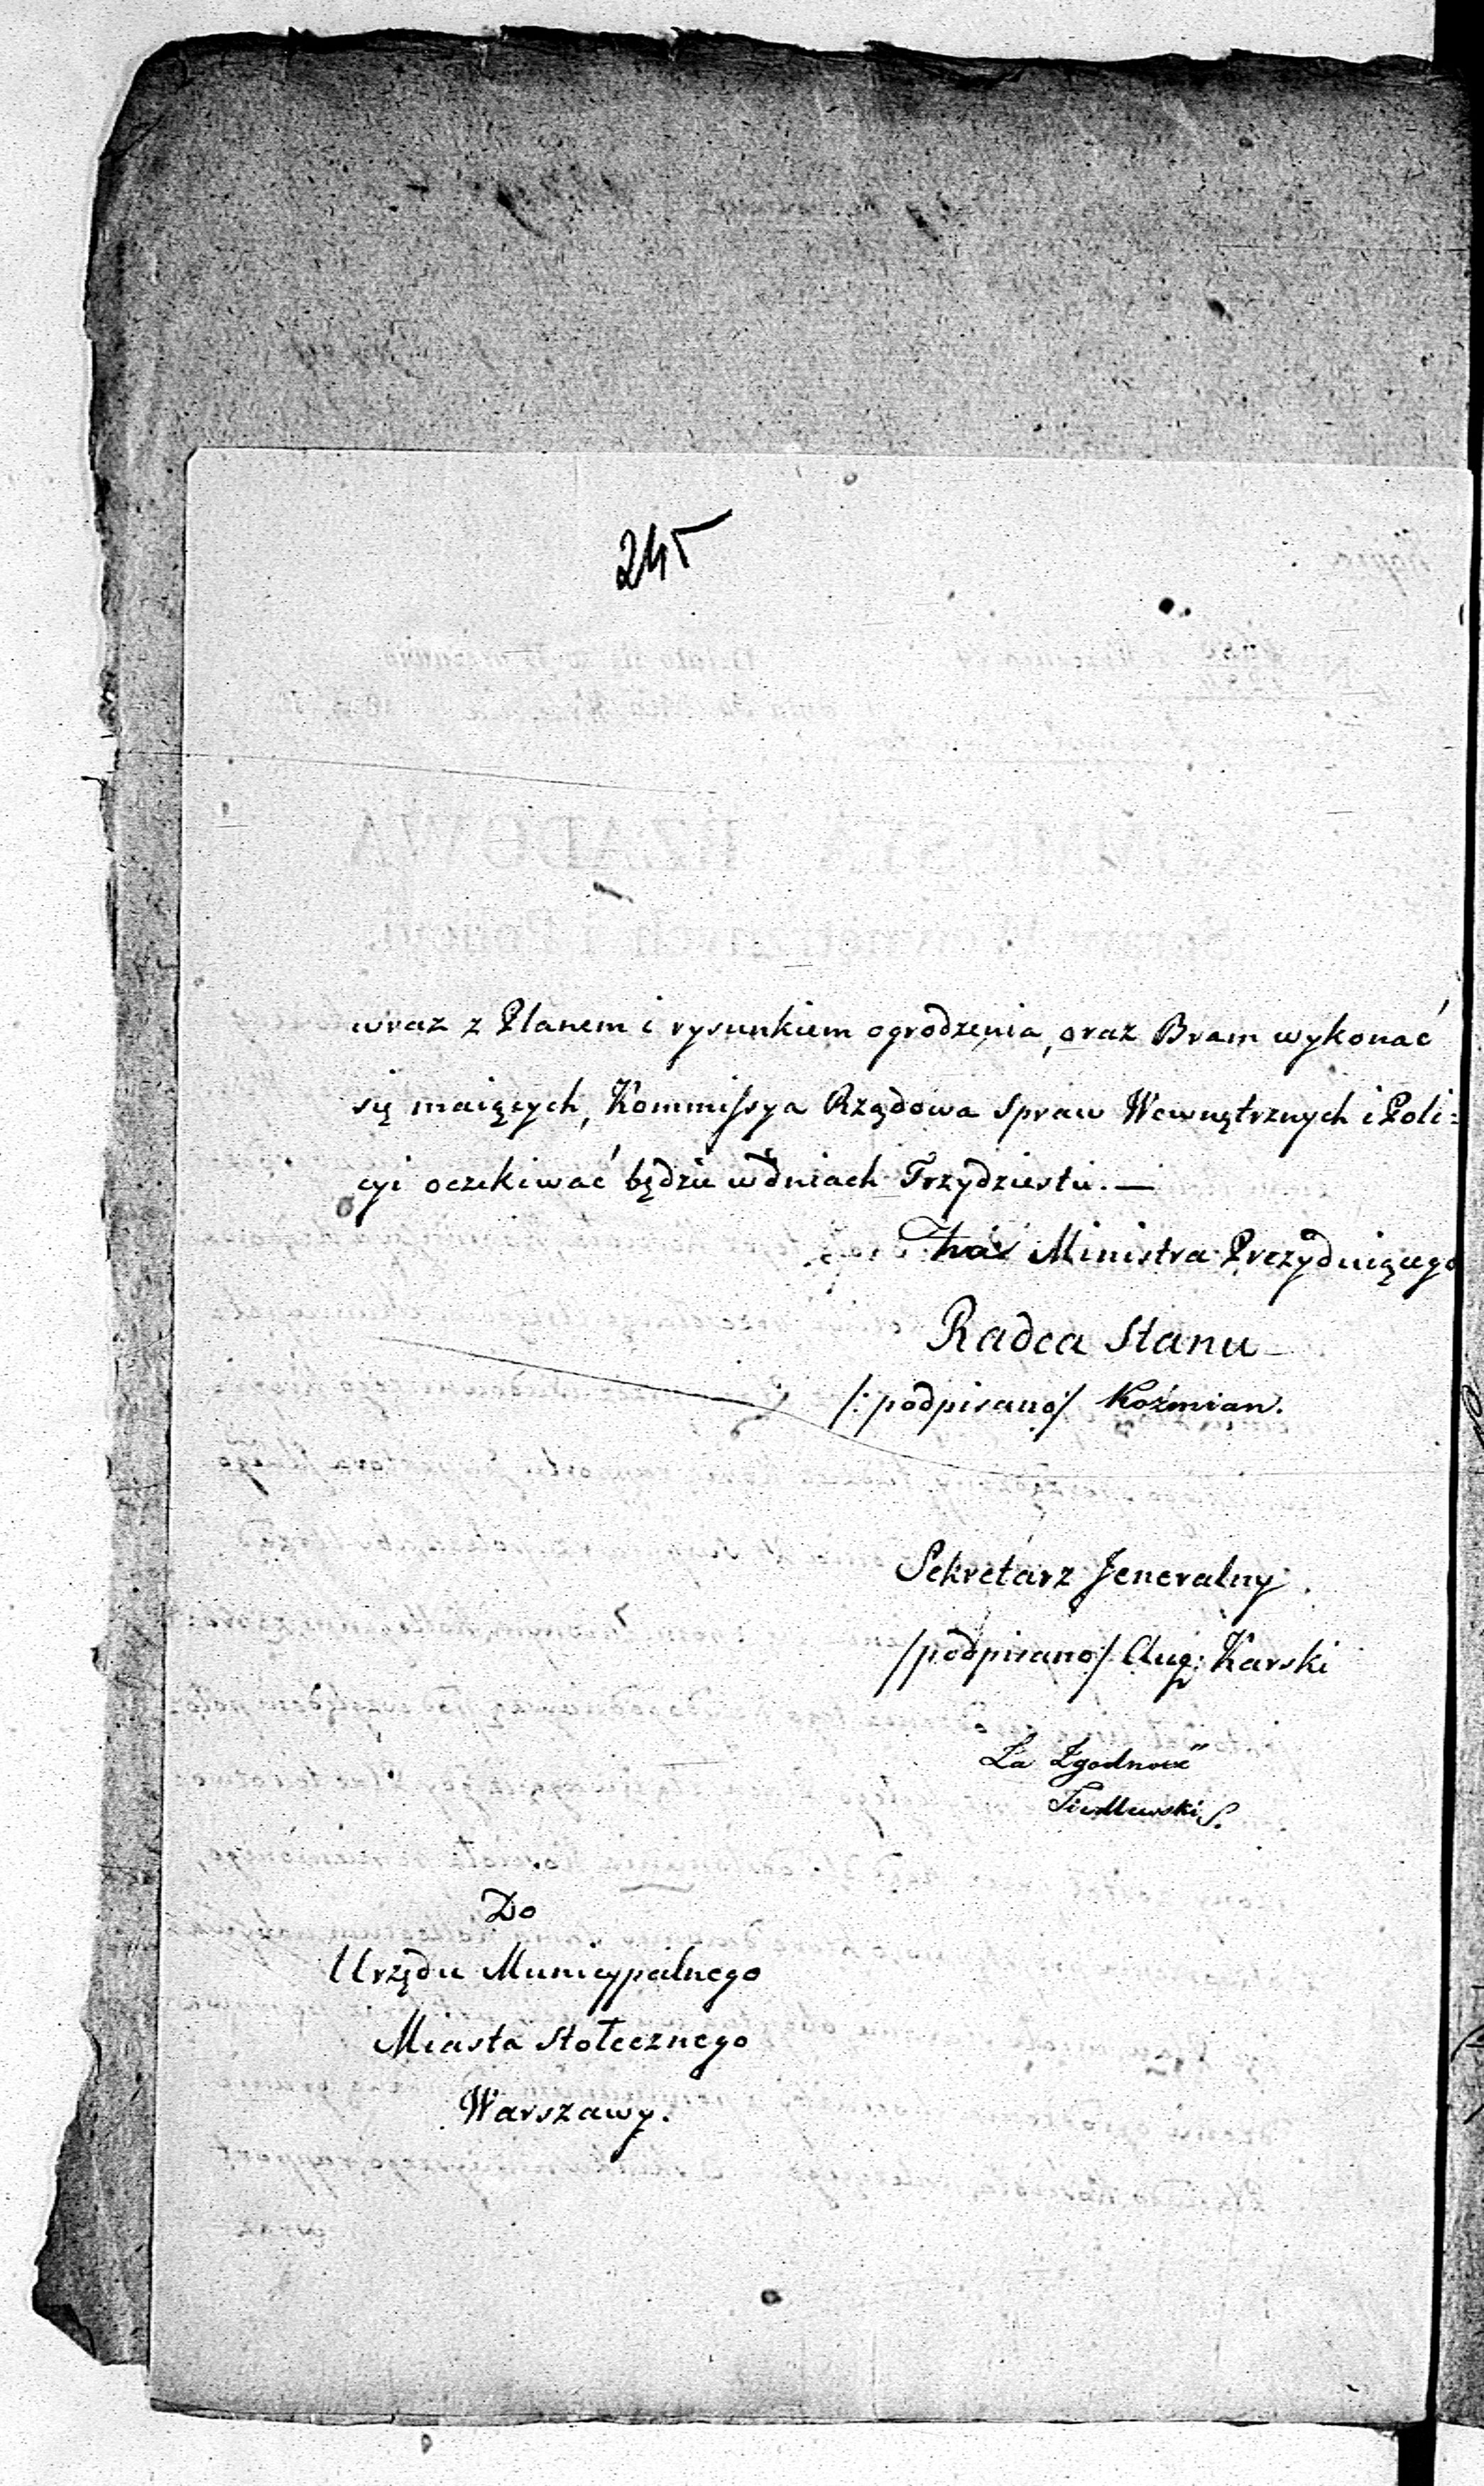 245
wraz z Planem i rysunkiem ogrodzenia, oraz Bram wykonać
się maiących, Kommissya Rządowa Spraw Wewnętrznych i Poli=
cyi oczekiwać będzie w dniach Trzydziestu. —
Ministra Prezyduiącego
Radca Stanu
/: podpisano/ Koźmian.
Sekretarz Jeneralny
/podpisano/ Aug: Karski
Za Zgodność
Do
Urzędu Municypalnego
Miasta Stołecznego
Warszawy.